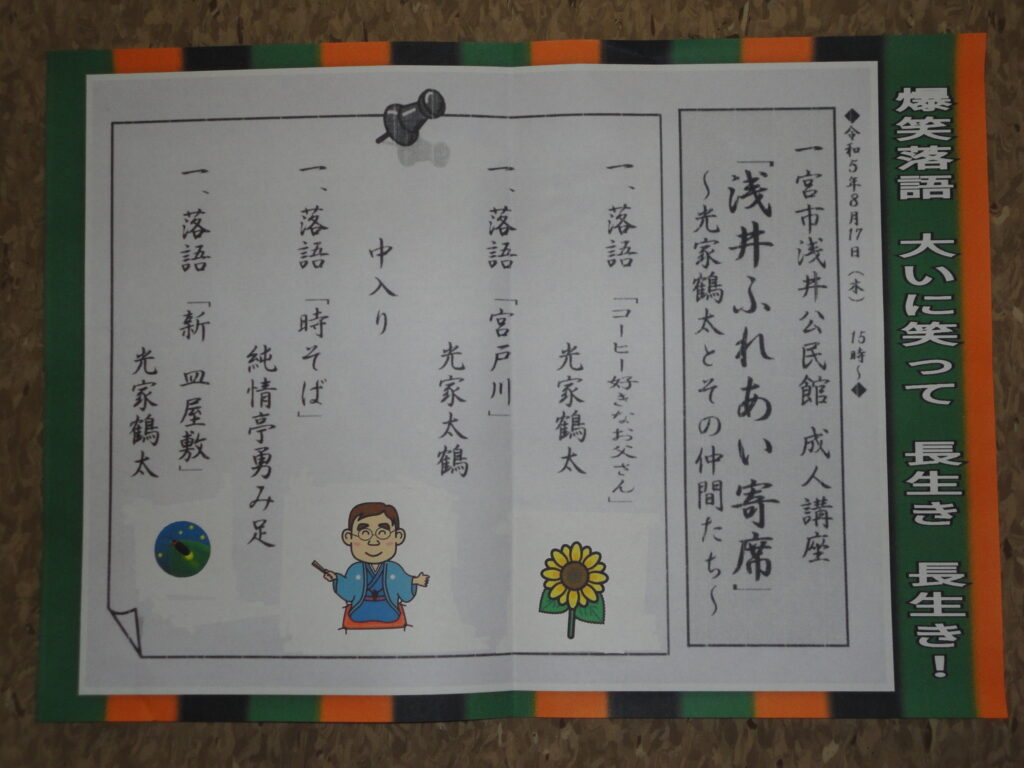 爆笑落語 大いに笑って 長生き 長生き！
◆令和5年8月17日（木） 15時～◆
一宮市浅井公民館 成人講座
「浅井ふれあい寄席」
～光家鶴太とその仲間たち～
一、落語「コーヒー好きなお父さん」
光家鶴太
一、落語「宮戸川」
光家太鶴
中入り
一、落語「時そば」
純情亭勇み足
一、落語「新 皿屋敷」
光家鶴太